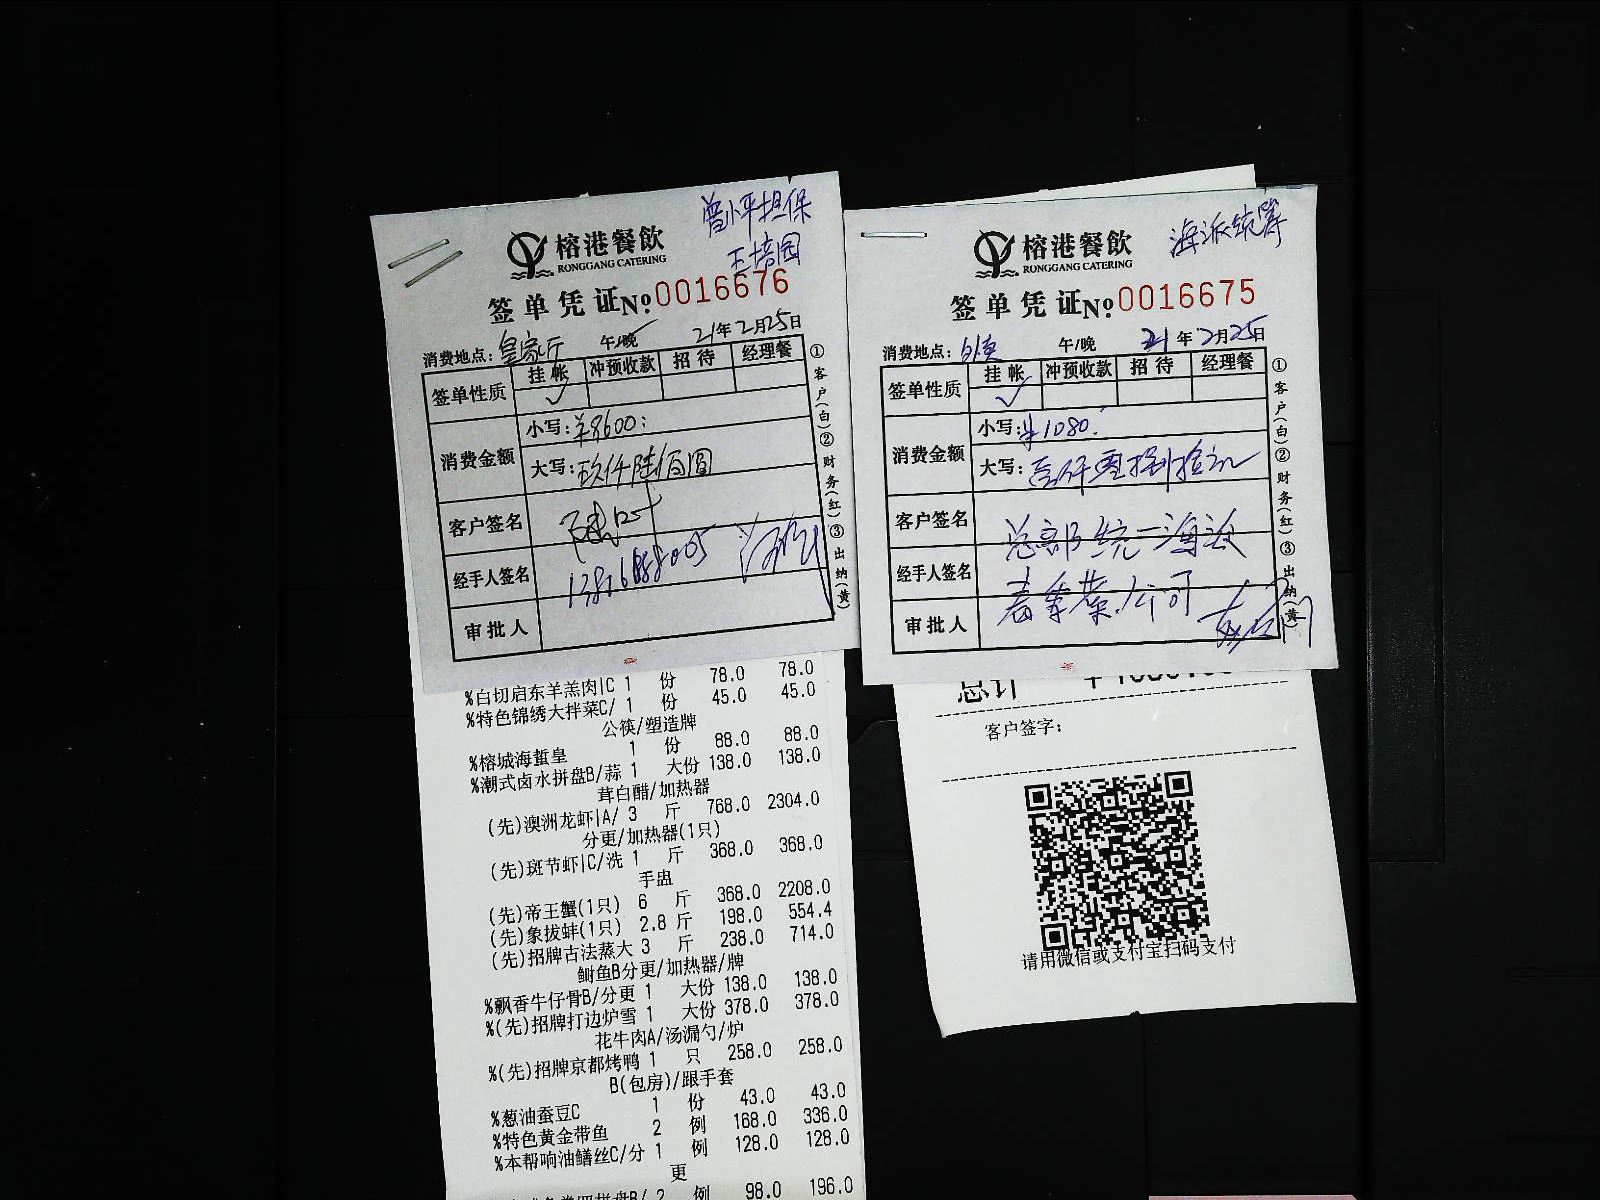 曾小平担保
王培园
榕港餐飲
RONGGANG CATERING
签单凭证№0016676
消费地点：皇家厅 午/晚 21年2月25日
签单性质 挂帐 冲预收款 招待 经理餐
✓
消费金额 小写：¥9600：
大写：玖仟陆佰圆
客户签名
经手人签名
审批人
①客户(白)②财务(红)③出纳(黄)
%白切启东羊羔肉|C 1 份 78.0 78.0
%特色锦绣大拌菜C/ 1 份 45.0 45.0
公筷/塑造牌
%榕城海蜇皇 1 份 88.0 88.0
%潮式卤水拼盘B/蒜 1 大份 138.0 138.0
茸白醋/加热器
(先)澳洲龙虾|A/ 3 斤 768.0 2304.0
分更/加热器(1只)
(先)斑节虾|C/洗 1 斤 368.0 368.0
手盅
(先)帝王蟹(1只) 6 斤 368.0 2208.0
(先)象拔蚌(1只) 2.8 斤 198.0 554.4
(先)招牌古法蒸大 3 斤 238.0 714.0
鲥鱼B分更/加热器/牌
%飘香牛仔骨B/分更 1 大份 138.0 138.0
%(先)招牌打边炉雪 1 大份 378.0 378.0
花牛肉A/汤漏勺/炉
%(先)招牌京都烤鸭 1 只 258.0 258.0
B(包房)/跟手套
%葱油蚕豆C 1 份 43.0 43.0
%特色黄金带鱼 2 例 168.0 336.0
%本帮响油鳝丝C/分 1 例 128.0 128.0
更
2 例 98.0 196.0
海派统筹
榕港餐飲
RONGGANG CATERING
签单凭证№0016675
消费地点： 午/晚 21年2月25日
签单性质 挂帐 冲预收款 招待 经理餐
✓
消费金额 小写：¥1080.
大写：壹仟零捌拾元
客户签名 总部统一海派
经手人签名 春季菜.公司
审批人
①客户(白)②财务(红)③出纳(黄)
总计
客户签字：
请用微信或支付宝扫码支付